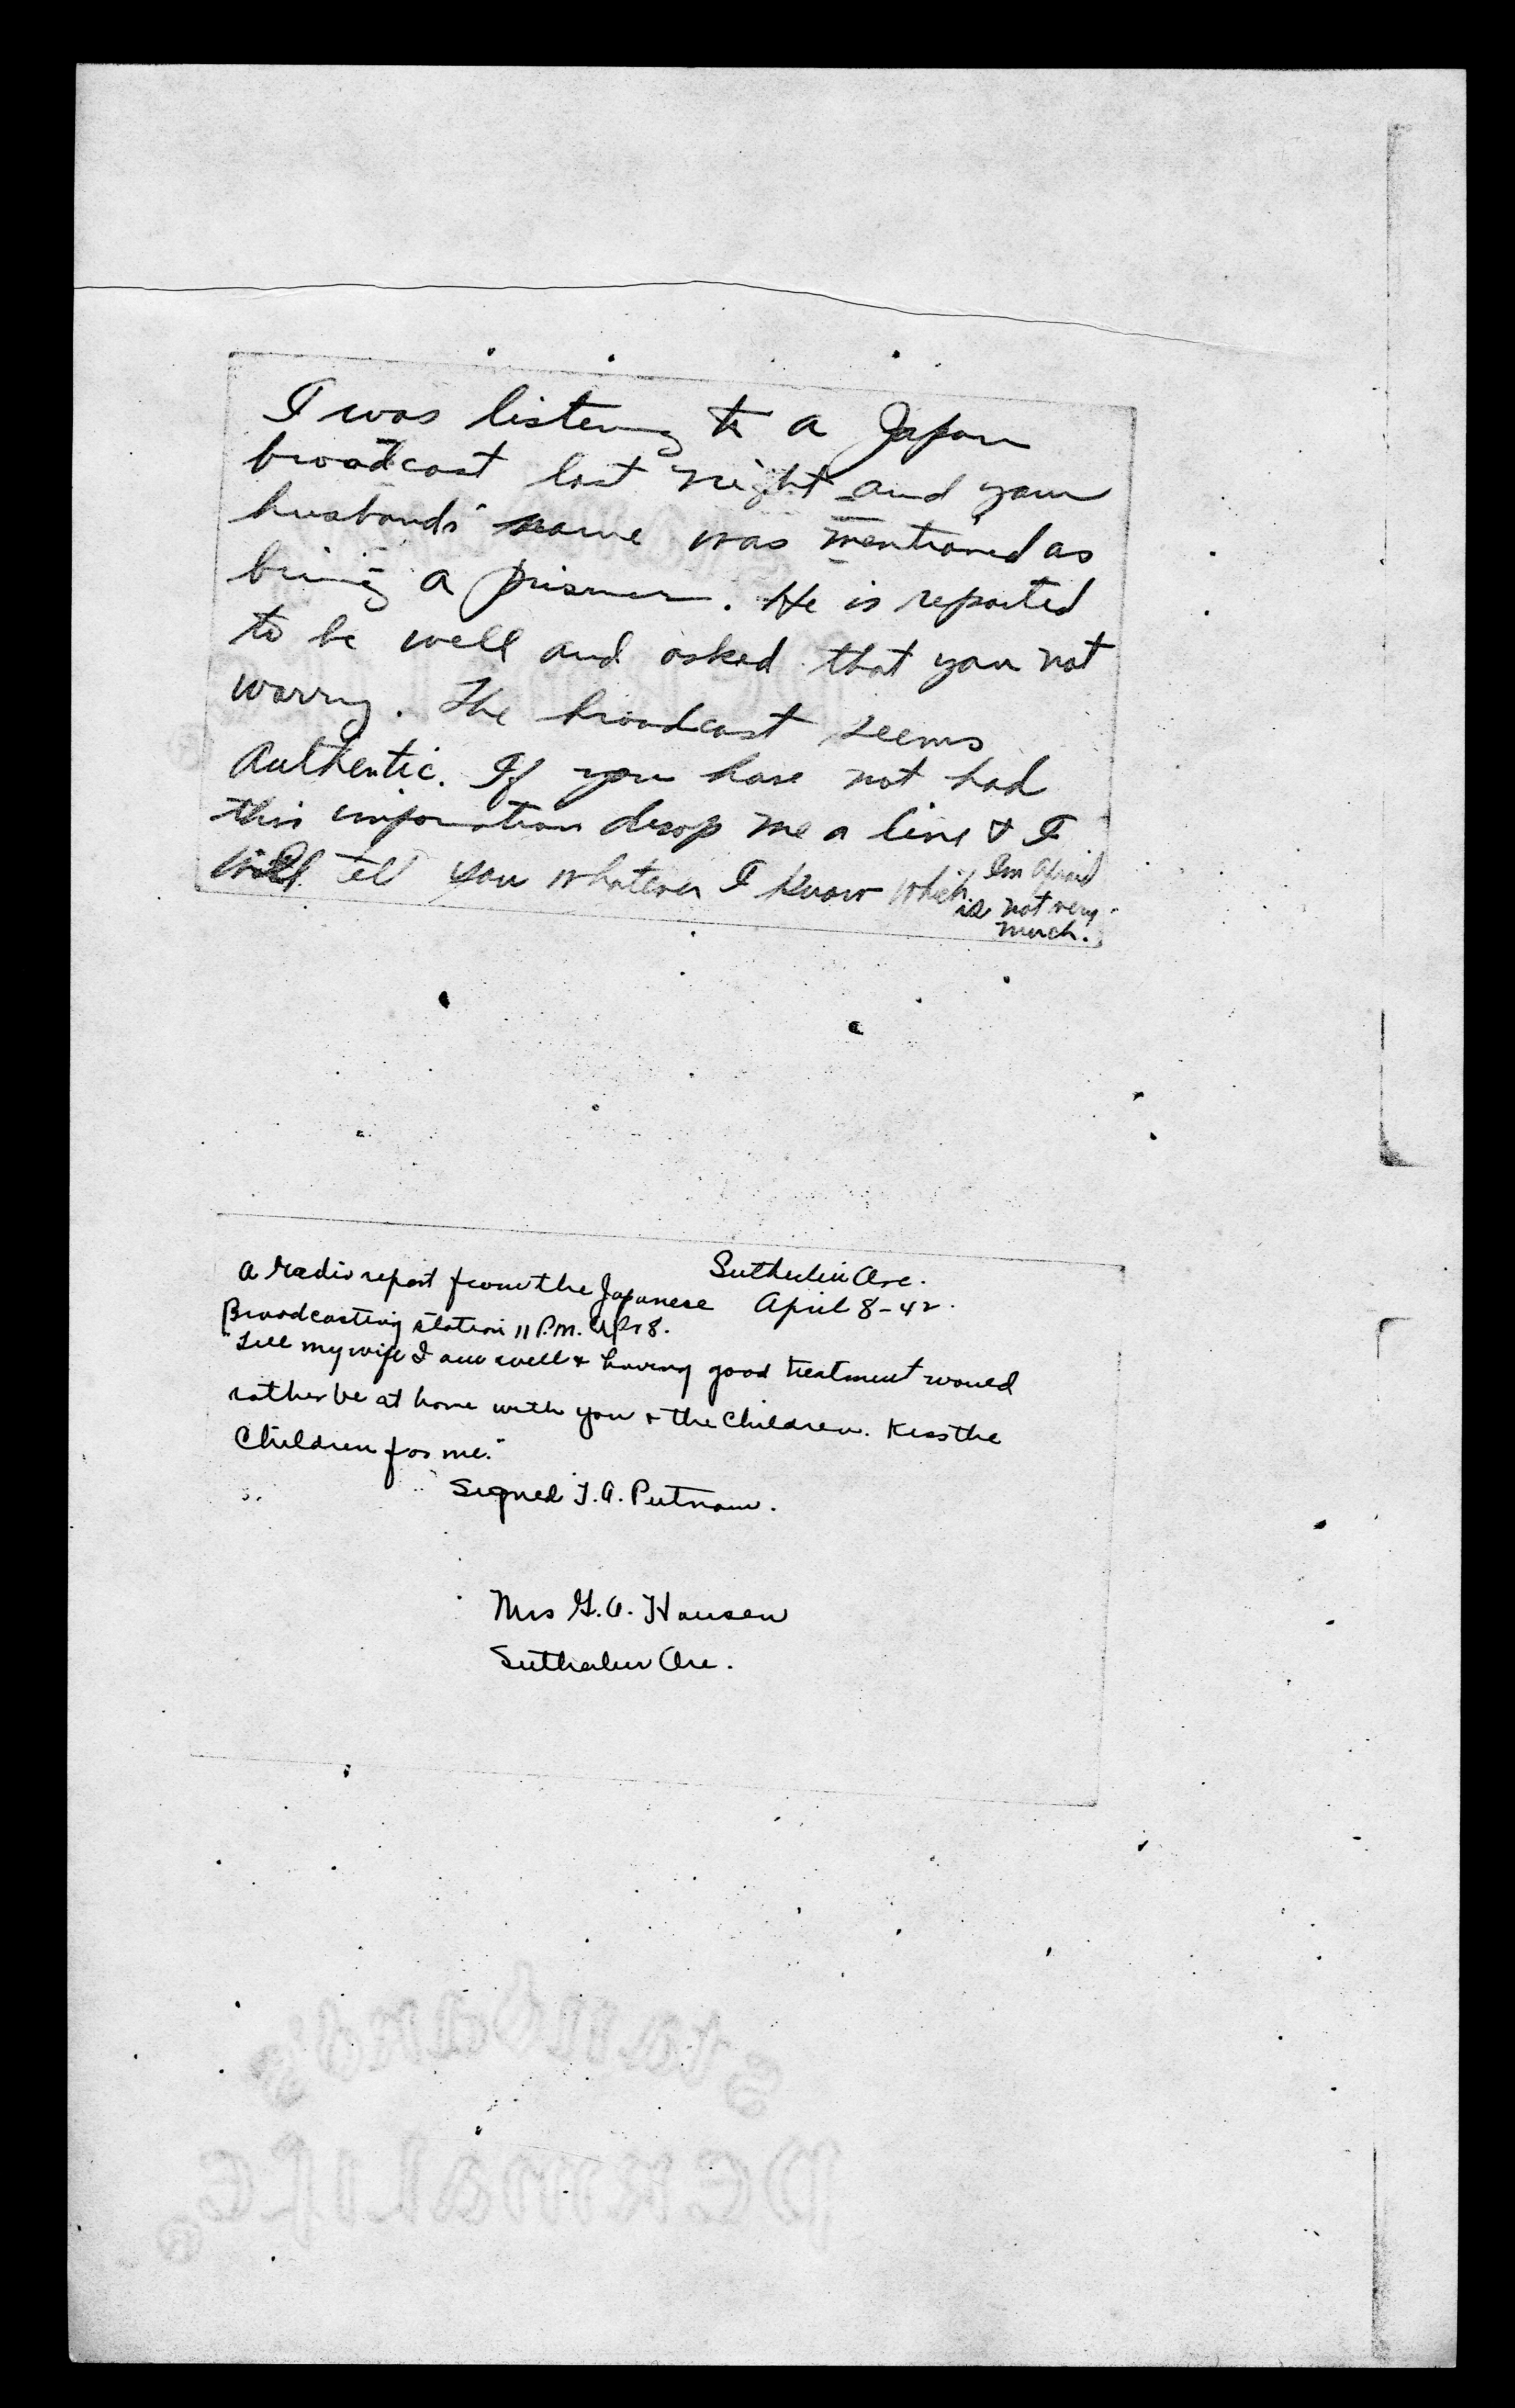 I was listening to a Japan
broadcast last night and your
husbands' name was mentioned as
being a prisoner. He is reported
to be well and asked that you not
worry. The broadcast seems
Authentic. If you have not had
this information drop me a line & I
will tell you whatever I know which, I'm afraid
is not very
much.
Sutherlin Ore.
A Radio report from the Japanese April 8-42.
Broadcasting station 11 P.M. Apr 8.
"Tell my wife I am well & having good treatment would
rather be at home with you & the Children. Kiss the
Children for me."
Signed P.A. Putnam.
Mrs G.A. Hansen
Sutherlin Ore.
Stanbard's
Permalife
®